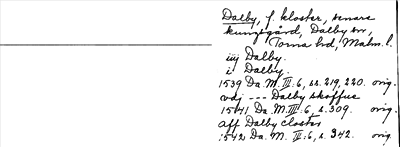 Dalby, f. kloster, senare
kungsgård, Dalby sn,
Torna hd, Malm. l.
iiij Dalby.
i Dalby.
1539 Da. M. II:6, ss. 219, 220. orig.
vdj --- Dalby skoffue
1541 Da. M. III:6, s. 309. orig.
aff Dalby closter
1542 Da. M. II:6, s. 342. orig.